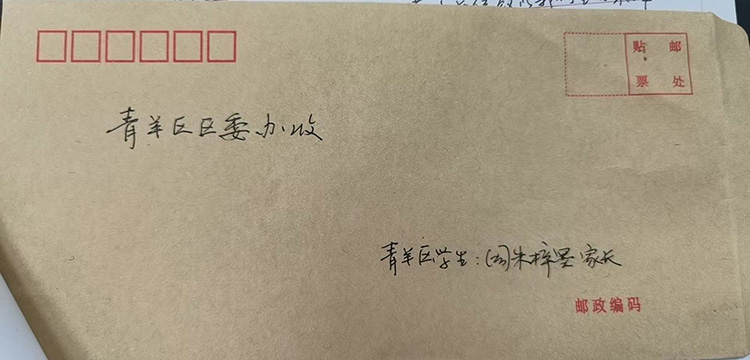 贴 邮
票 处
青羊区区委办收
青羊区学生：朱梓墨家长
邮政编码